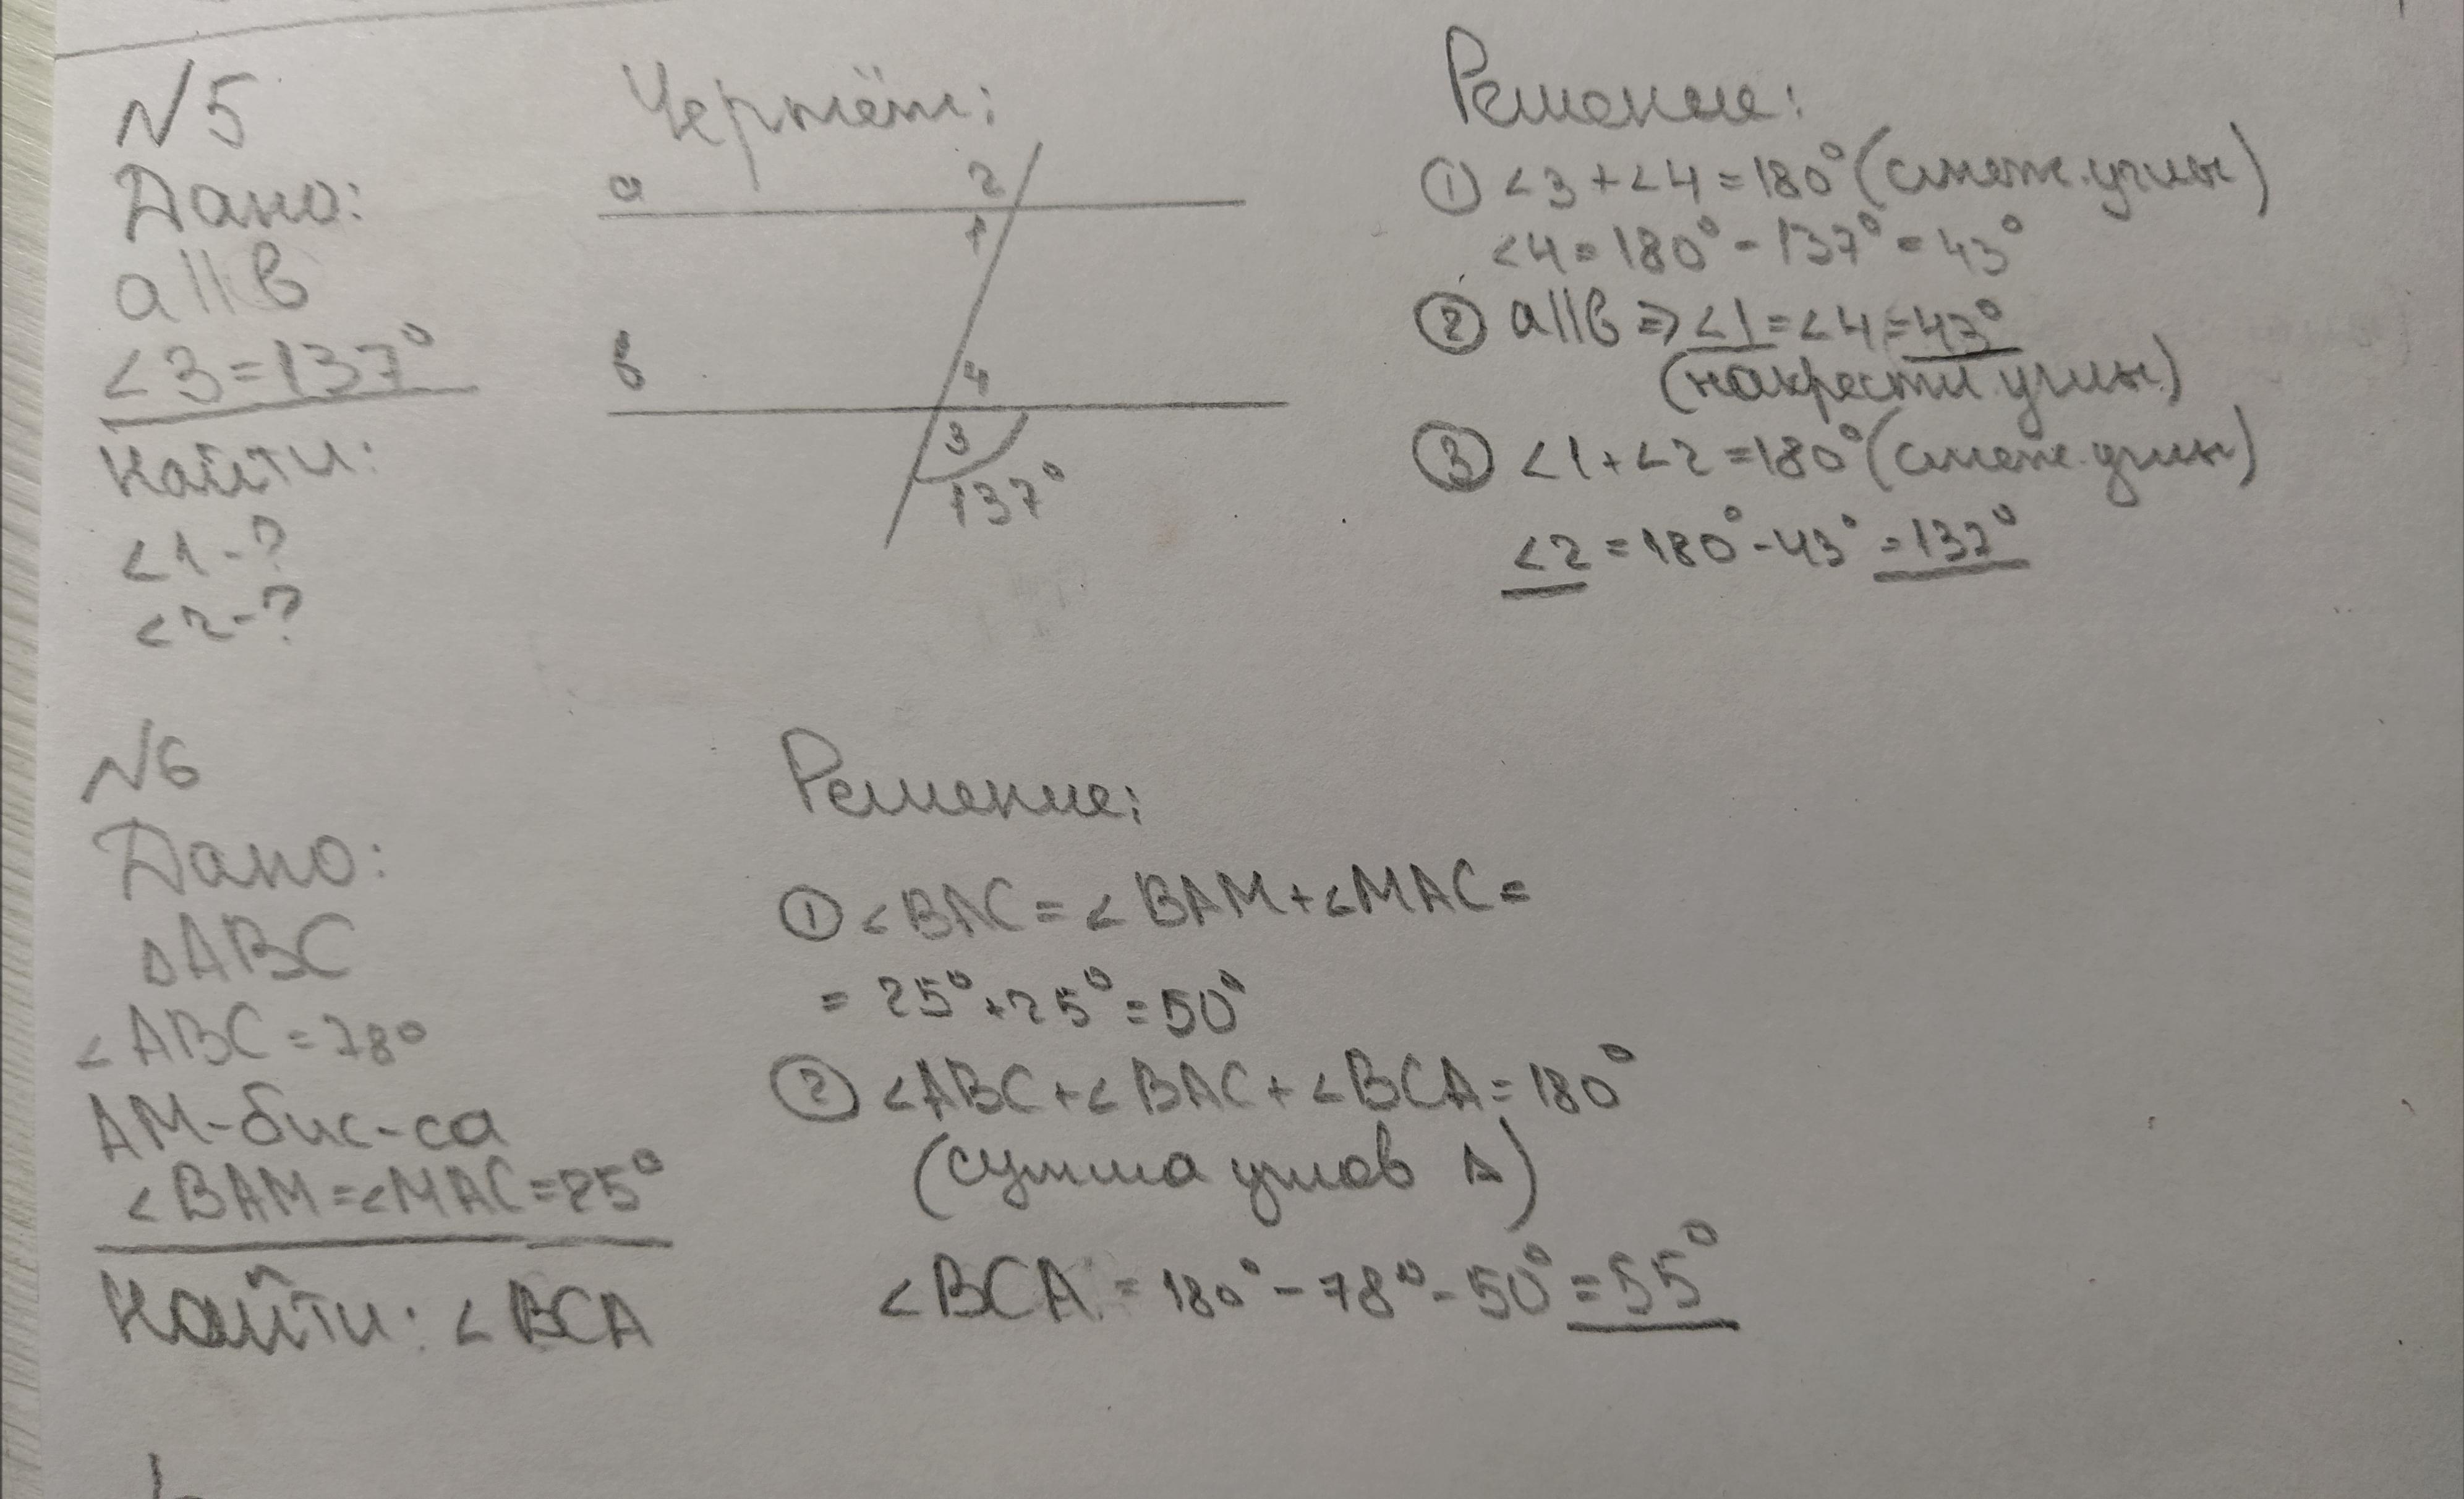 N5
Дано:
a||b
<3=137°
Найти:
<1-?
<2-?
Чертёж:
a
2
1
b
4
3
137°
Решение:
① <3+<4=180° (смеж. углы)
<4=180°-137°=43°
② a||b ⇒ <1=<4=43°
(накрестл. углы)
③ <1+<2=180° (смеж. углы)
<2=180°-43°=137°
N6
Дано:
△ABC
<ABC=78°
AM-бис-са
<BAM=<MAC=25°
Найти: <BCA
Решение:
① <BAC=<BAM+<MAC=
=25°+25°=50°
② <ABC+<BAC+<BCA=180°
(сумма углов △)
<BCA=180°-78°-50°=55°